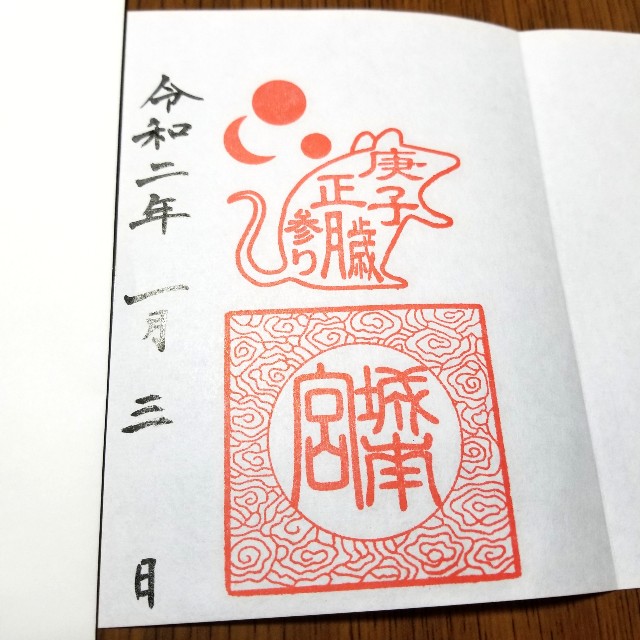 令和二年 一月三日
庚子歳
正月
参り
城南宮